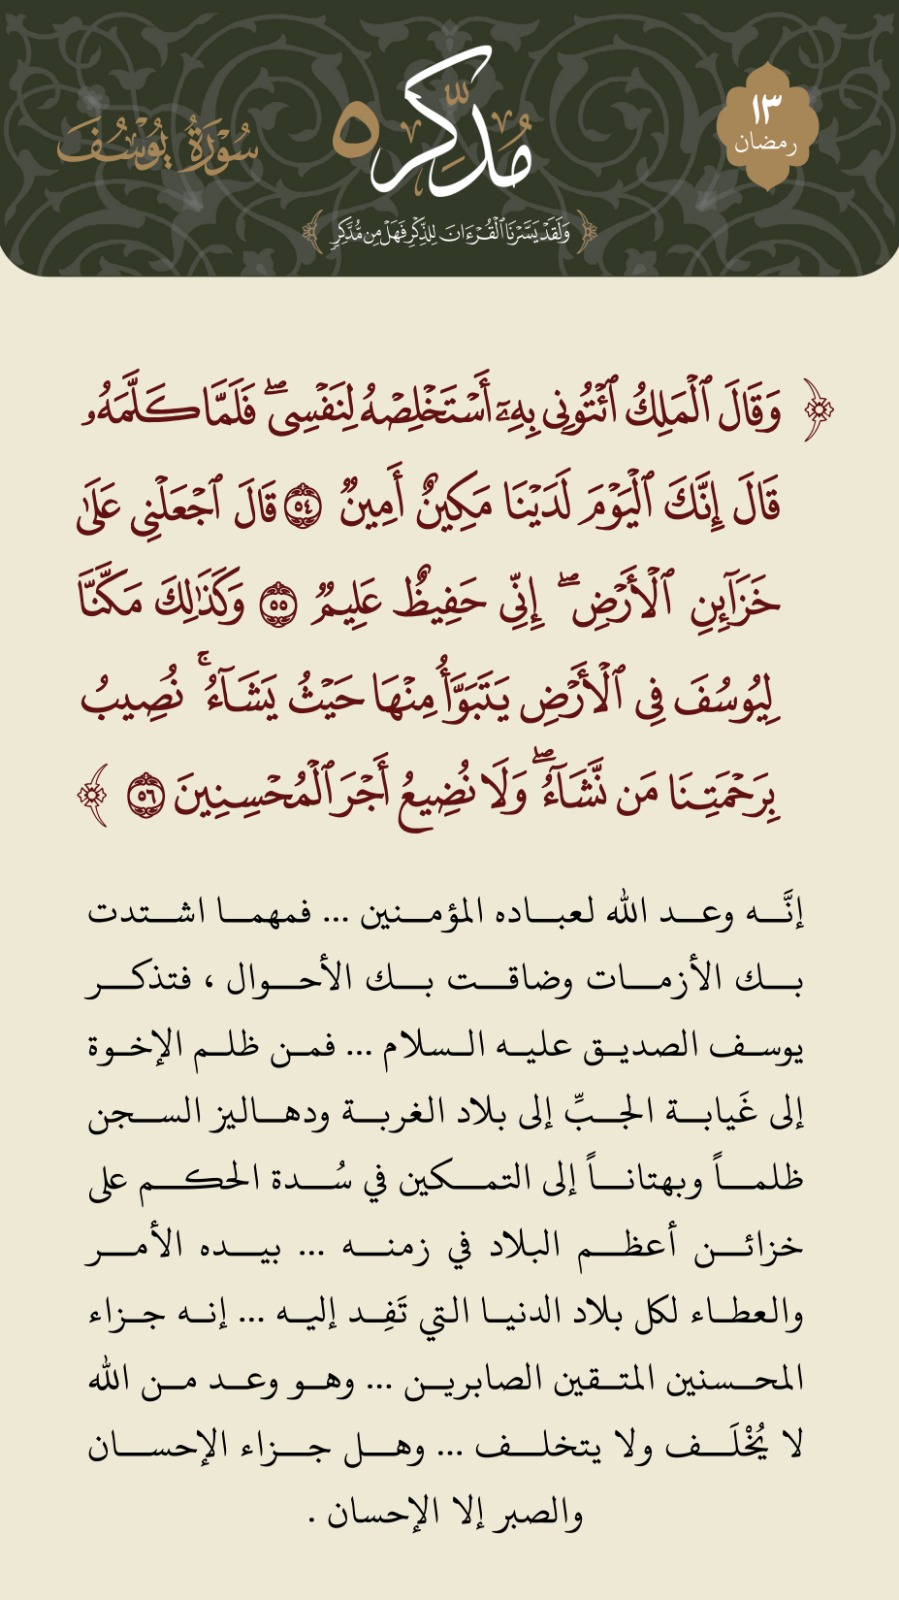 ١٣
رمضان
مُدَّكِر ٥
سُورَةُ يُوسُفَ
﴿وَلَقَدْ يَسَّرْنَا ٱلْقُرْءَانَ لِلذِّكْرِ فَهَلْ مِن مُّدَّكِرٍ﴾
﴿ وَقَالَ ٱلْمَلِكُ ٱئْتُونِى بِهِۦٓ أَسْتَخْلِصْهُ لِنَفْسِى ۖ فَلَمَّا كَلَّمَهُۥ
قَالَ إِنَّكَ ٱلْيَوْمَ لَدَيْنَا مَكِينٌ أَمِينٌ ٥٤ قَالَ ٱجْعَلْنِى عَلَىٰ
خَزَآئِنِ ٱلْأَرْضِ ۖ إِنِّى حَفِيظٌ عَلِيمٌ ٥٥ وَكَذَٰلِكَ مَكَّنَّا
لِيُوسُفَ فِى ٱلْأَرْضِ يَتَبَوَّأُ مِنْهَا حَيْثُ يَشَآءُ ۚ نُصِيبُ
بِرَحْمَتِنَا مَن نَّشَآءُ ۖ وَلَا نُضِيعُ أَجْرَ ٱلْمُحْسِنِينَ ٥٦ ﴾
إنَّه وعد الله لعباده المؤمنين ... فمهما اشتدت
بك الأزمات وضاقت بك الأحوال ، فتذكر
يوسف الصديق عليه السلام ... فمن ظلم الإخوة
إلى غَيابة الجبِّ إلى بلاد الغربة ودهاليز السجن
ظلماً وبهتاناً إلى التمكين في سُدة الحكم على
خزائن أعظم البلاد في زمنه ... بيده الأمر
والعطاء لكل بلاد الدنيا التي تَفِد إليه ... إنه جزاء
المحسنين المتقين الصابرين ... وهو وعد من الله
لا يُخْلَف ولا يتخلف ... وهل جزاء الإحسان
والصبر إلا الإحسان .